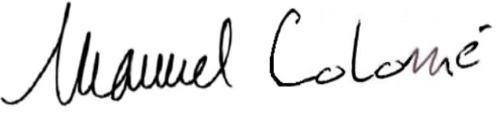 Manuel Colomé